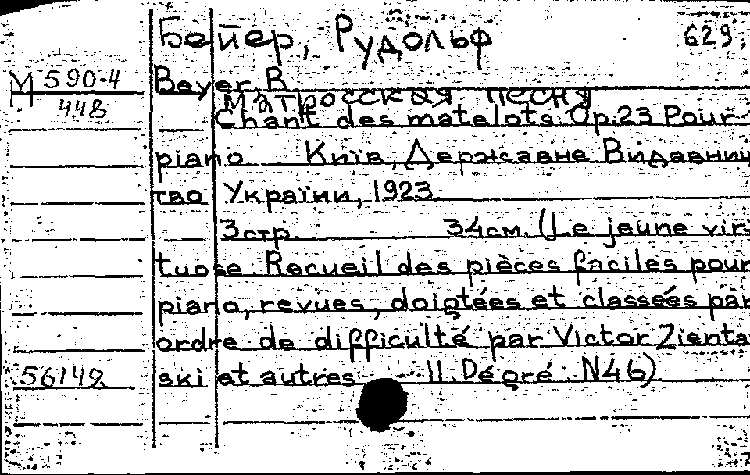 Бейер, Рудольф
629.
М 590-4
П 448
Beyer R.
Матросская песня
Chant des matelots. Op.23 Pour
piano Київ, Державне Видавниц
тво України, 1923
3 стр. 34 см. (Le jeune vir-
tuose. Recueil des pièces faciles pour
piano, revues, doigtées et classées par
ordre de difficulté par Victor Zienta
ski et autres II. Dégré. N46)
56149